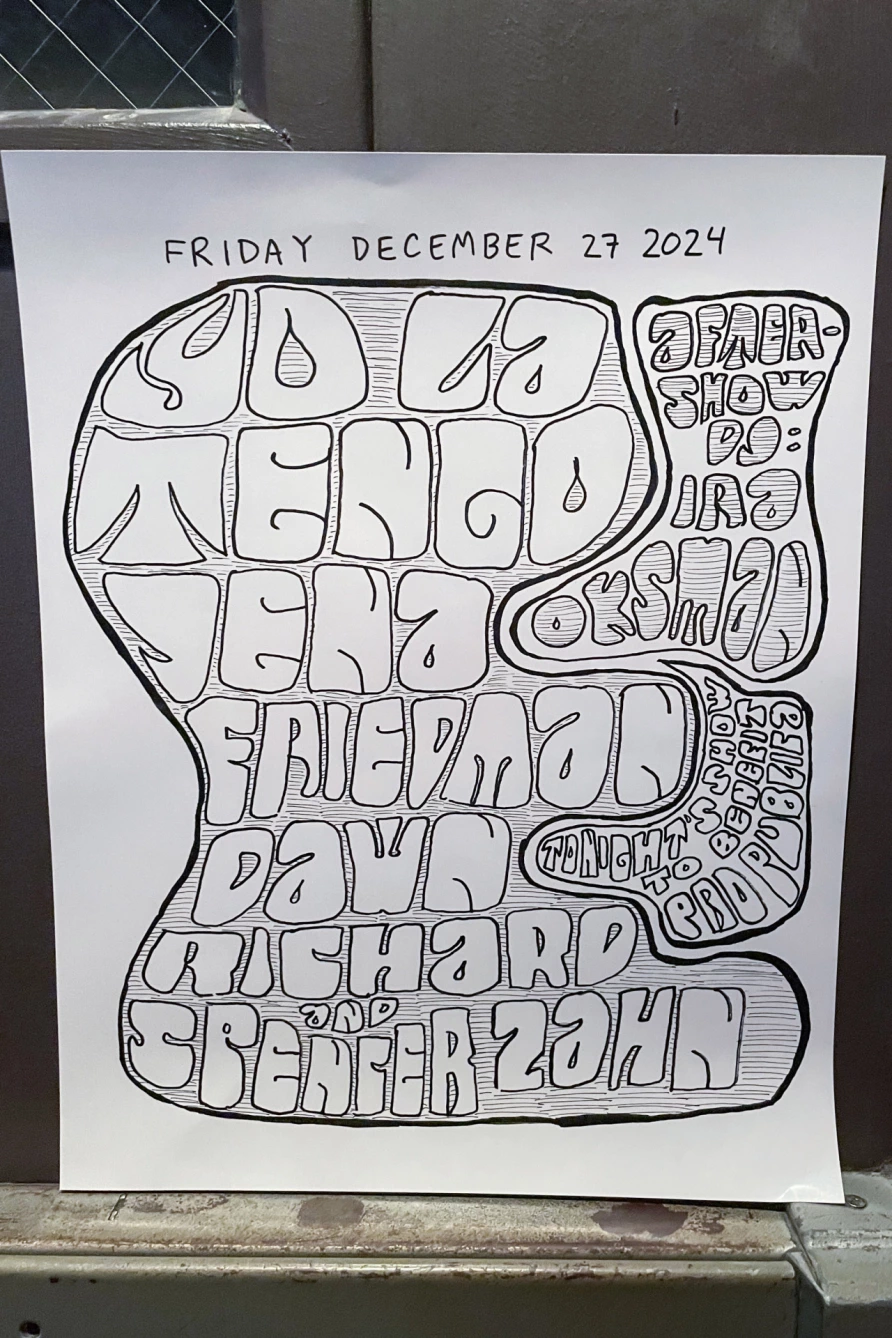 FRIDAY DECEMBER 27 2024
YO LA
TENGO
JENA
FRIEDMAN
DAWN
RICHARD
AND
SPENCER ZAHN
AFTER-
SHOW
DJ:
IRA
OKSMAN
TONIGHT'S SHOW
TO BENEFIT
PROPUBLICA